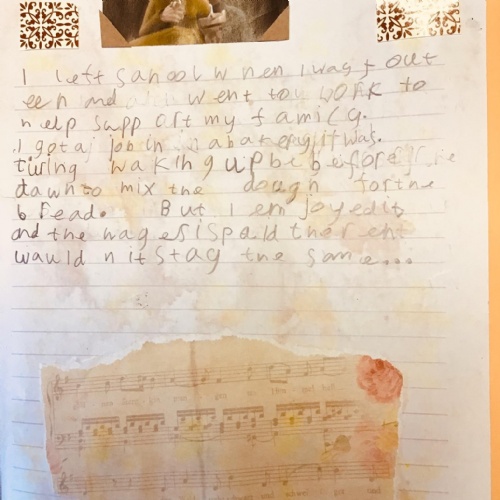 I left sahool w nen I was f out
een and went tou WORK to
nelp supp ort my f amicy.
I got aj job in a bakery it was.
tiring wakingup be before the
dawn to mix the dough fortne
bread. But I emjoyedit
and the wagesispaid therent
wauld nitstag tne same...